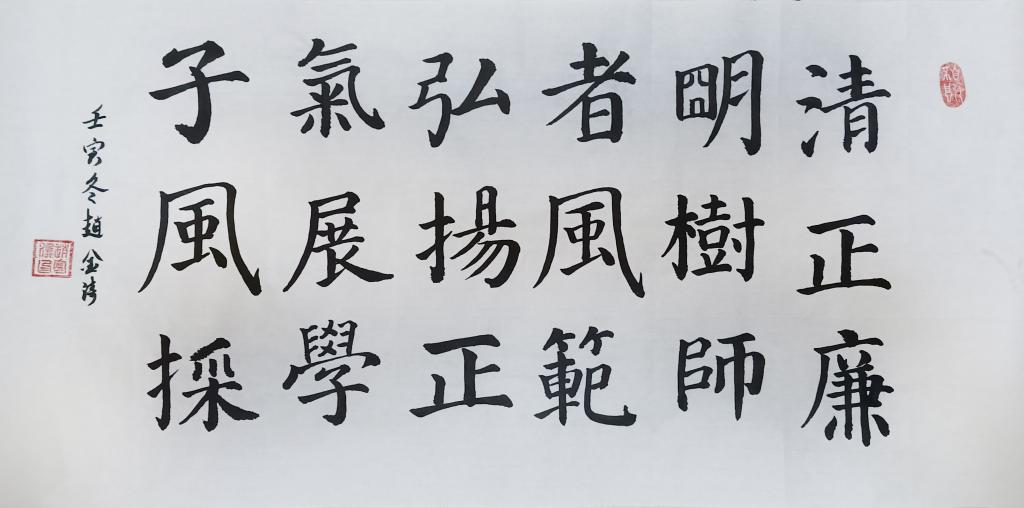 清正廉
明樹師
者風範
弘揚正
氣展學
子風採
壬寅冬趙金濤